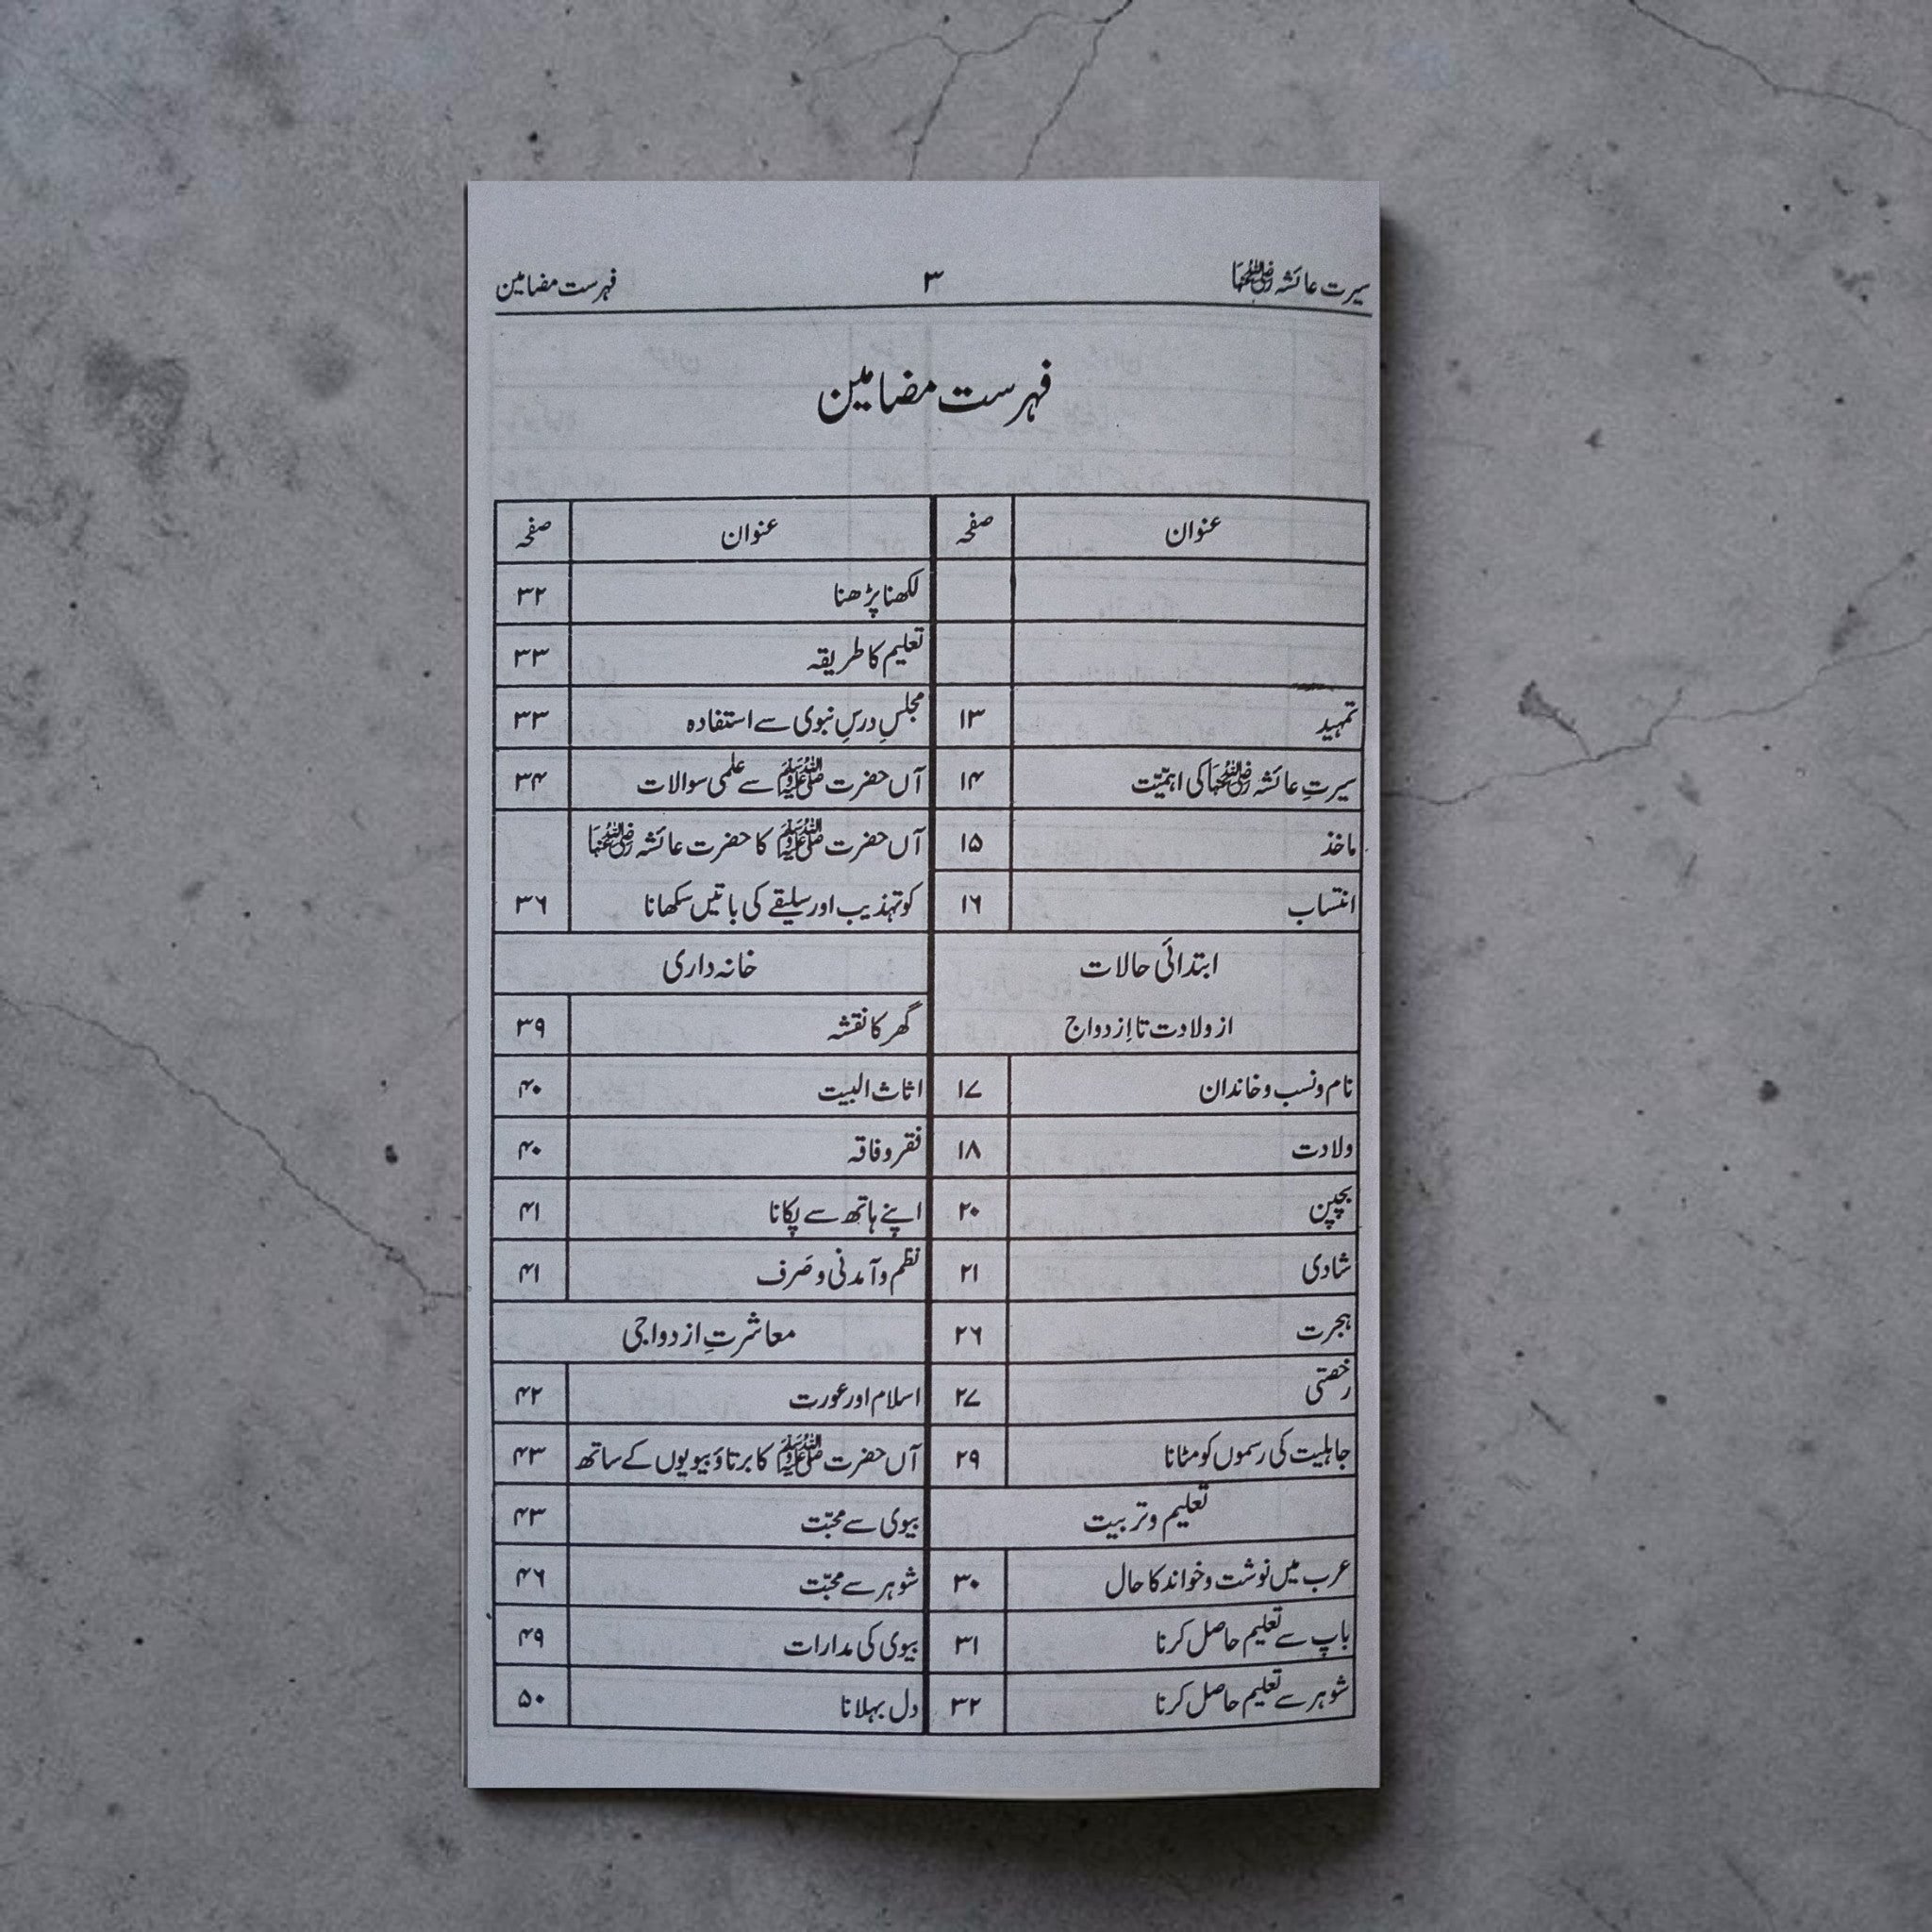 سیرت عائشہ رضی اللہ عنہا ۳ فہرست مضامین
فہرست مضامین
عنوان صفحہ
تمہید ۱۳
سیرتِ عائشہ رضی اللہ عنہا کی اہمیّت ۱۴
ماخذ ۱۵
انتساب ۱۶
ابتدائی حالات
از ولادت تا اِزدواج
نام و نسب و خاندان ۱۷
ولادت ۱۸
بچپن ۲۰
شادی ۲۱
ہجرت ۲۶
رخصتی ۲۷
جاہلیت کی رسموں کو مٹانا ۲۹
تعلیم و تربیت
عرب میں نوشت و خواند کا حال ۳۰
باپ سے تعلیم حاصل کرنا ۳۱
شوہر سے تعلیم حاصل کرنا ۳۲
عنوان صفحہ
لکھنا پڑھنا ۳۲
تعلیم کا طریقہ ۳۳
مجلسِ درسِ نبوی سے استفادہ ۳۳
آں حضرت ﷺ سے علمی سوالات ۳۴
آں حضرت ﷺ کا حضرت عائشہ رضی اللہ عنہا
کو تہذیب اور سلیقے کی باتیں سکھانا ۳۶
خانہ داری
گھر کا نقشہ ۳۹
اثاث البیت ۴۰
فقر و فاقہ ۴۰
اپنے ہاتھ سے پکانا ۴۱
نظم و آمدنی و صَرف ۴۱
معاشرتِ ازدواجی
اسلام اور عورت ۴۲
آں حضرت ﷺ کا برتاؤ بیویوں کے ساتھ ۴۳
بیوی سے محبّت ۴۳
شوہر سے محبّت ۴۶
بیوی کی مدارات ۴۹
دل بہلانا ۵۰